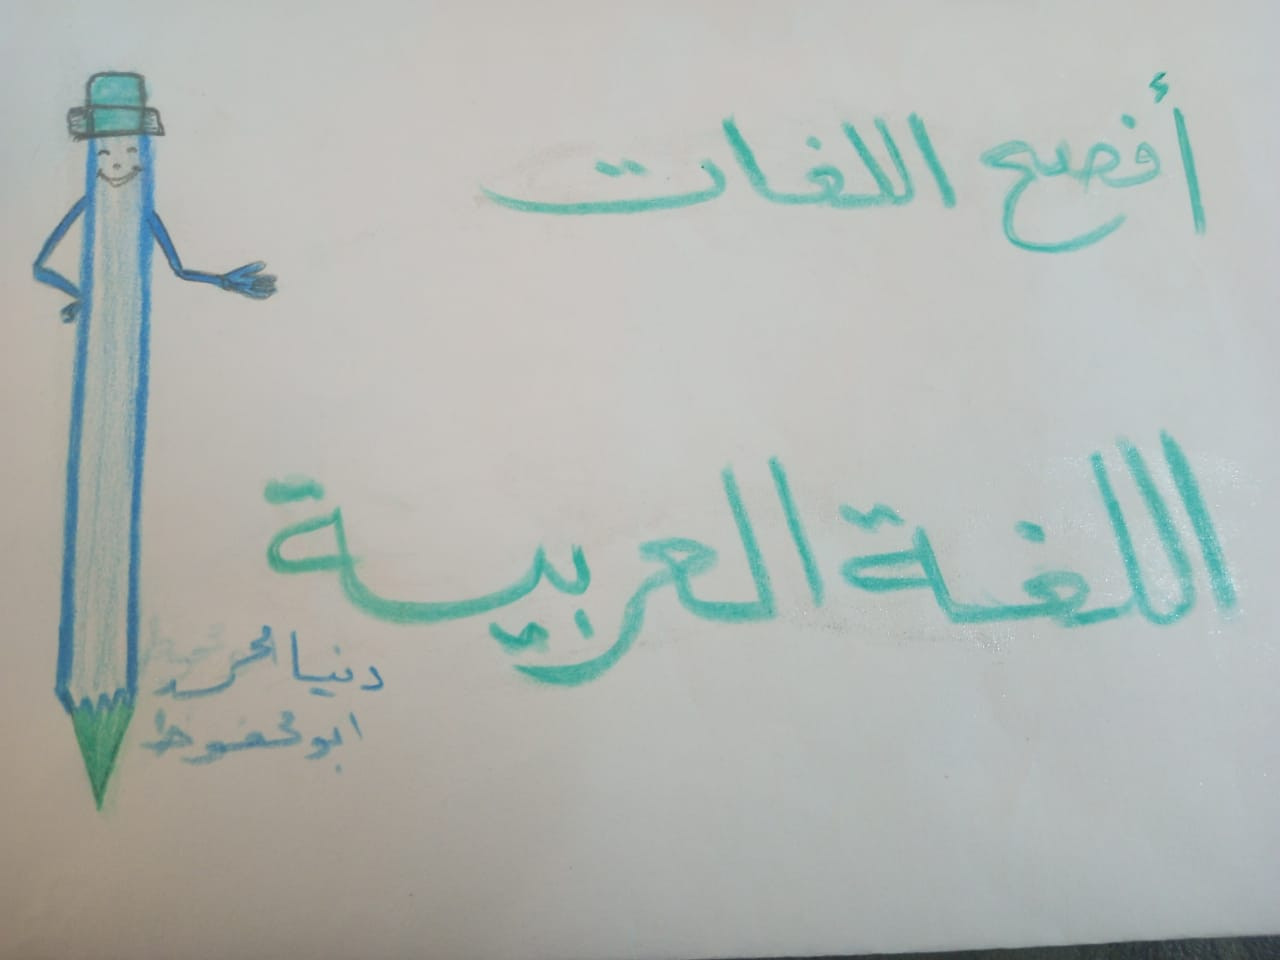 أفصح اللغات
اللغة العربية
دنيا
ابو محفوظ